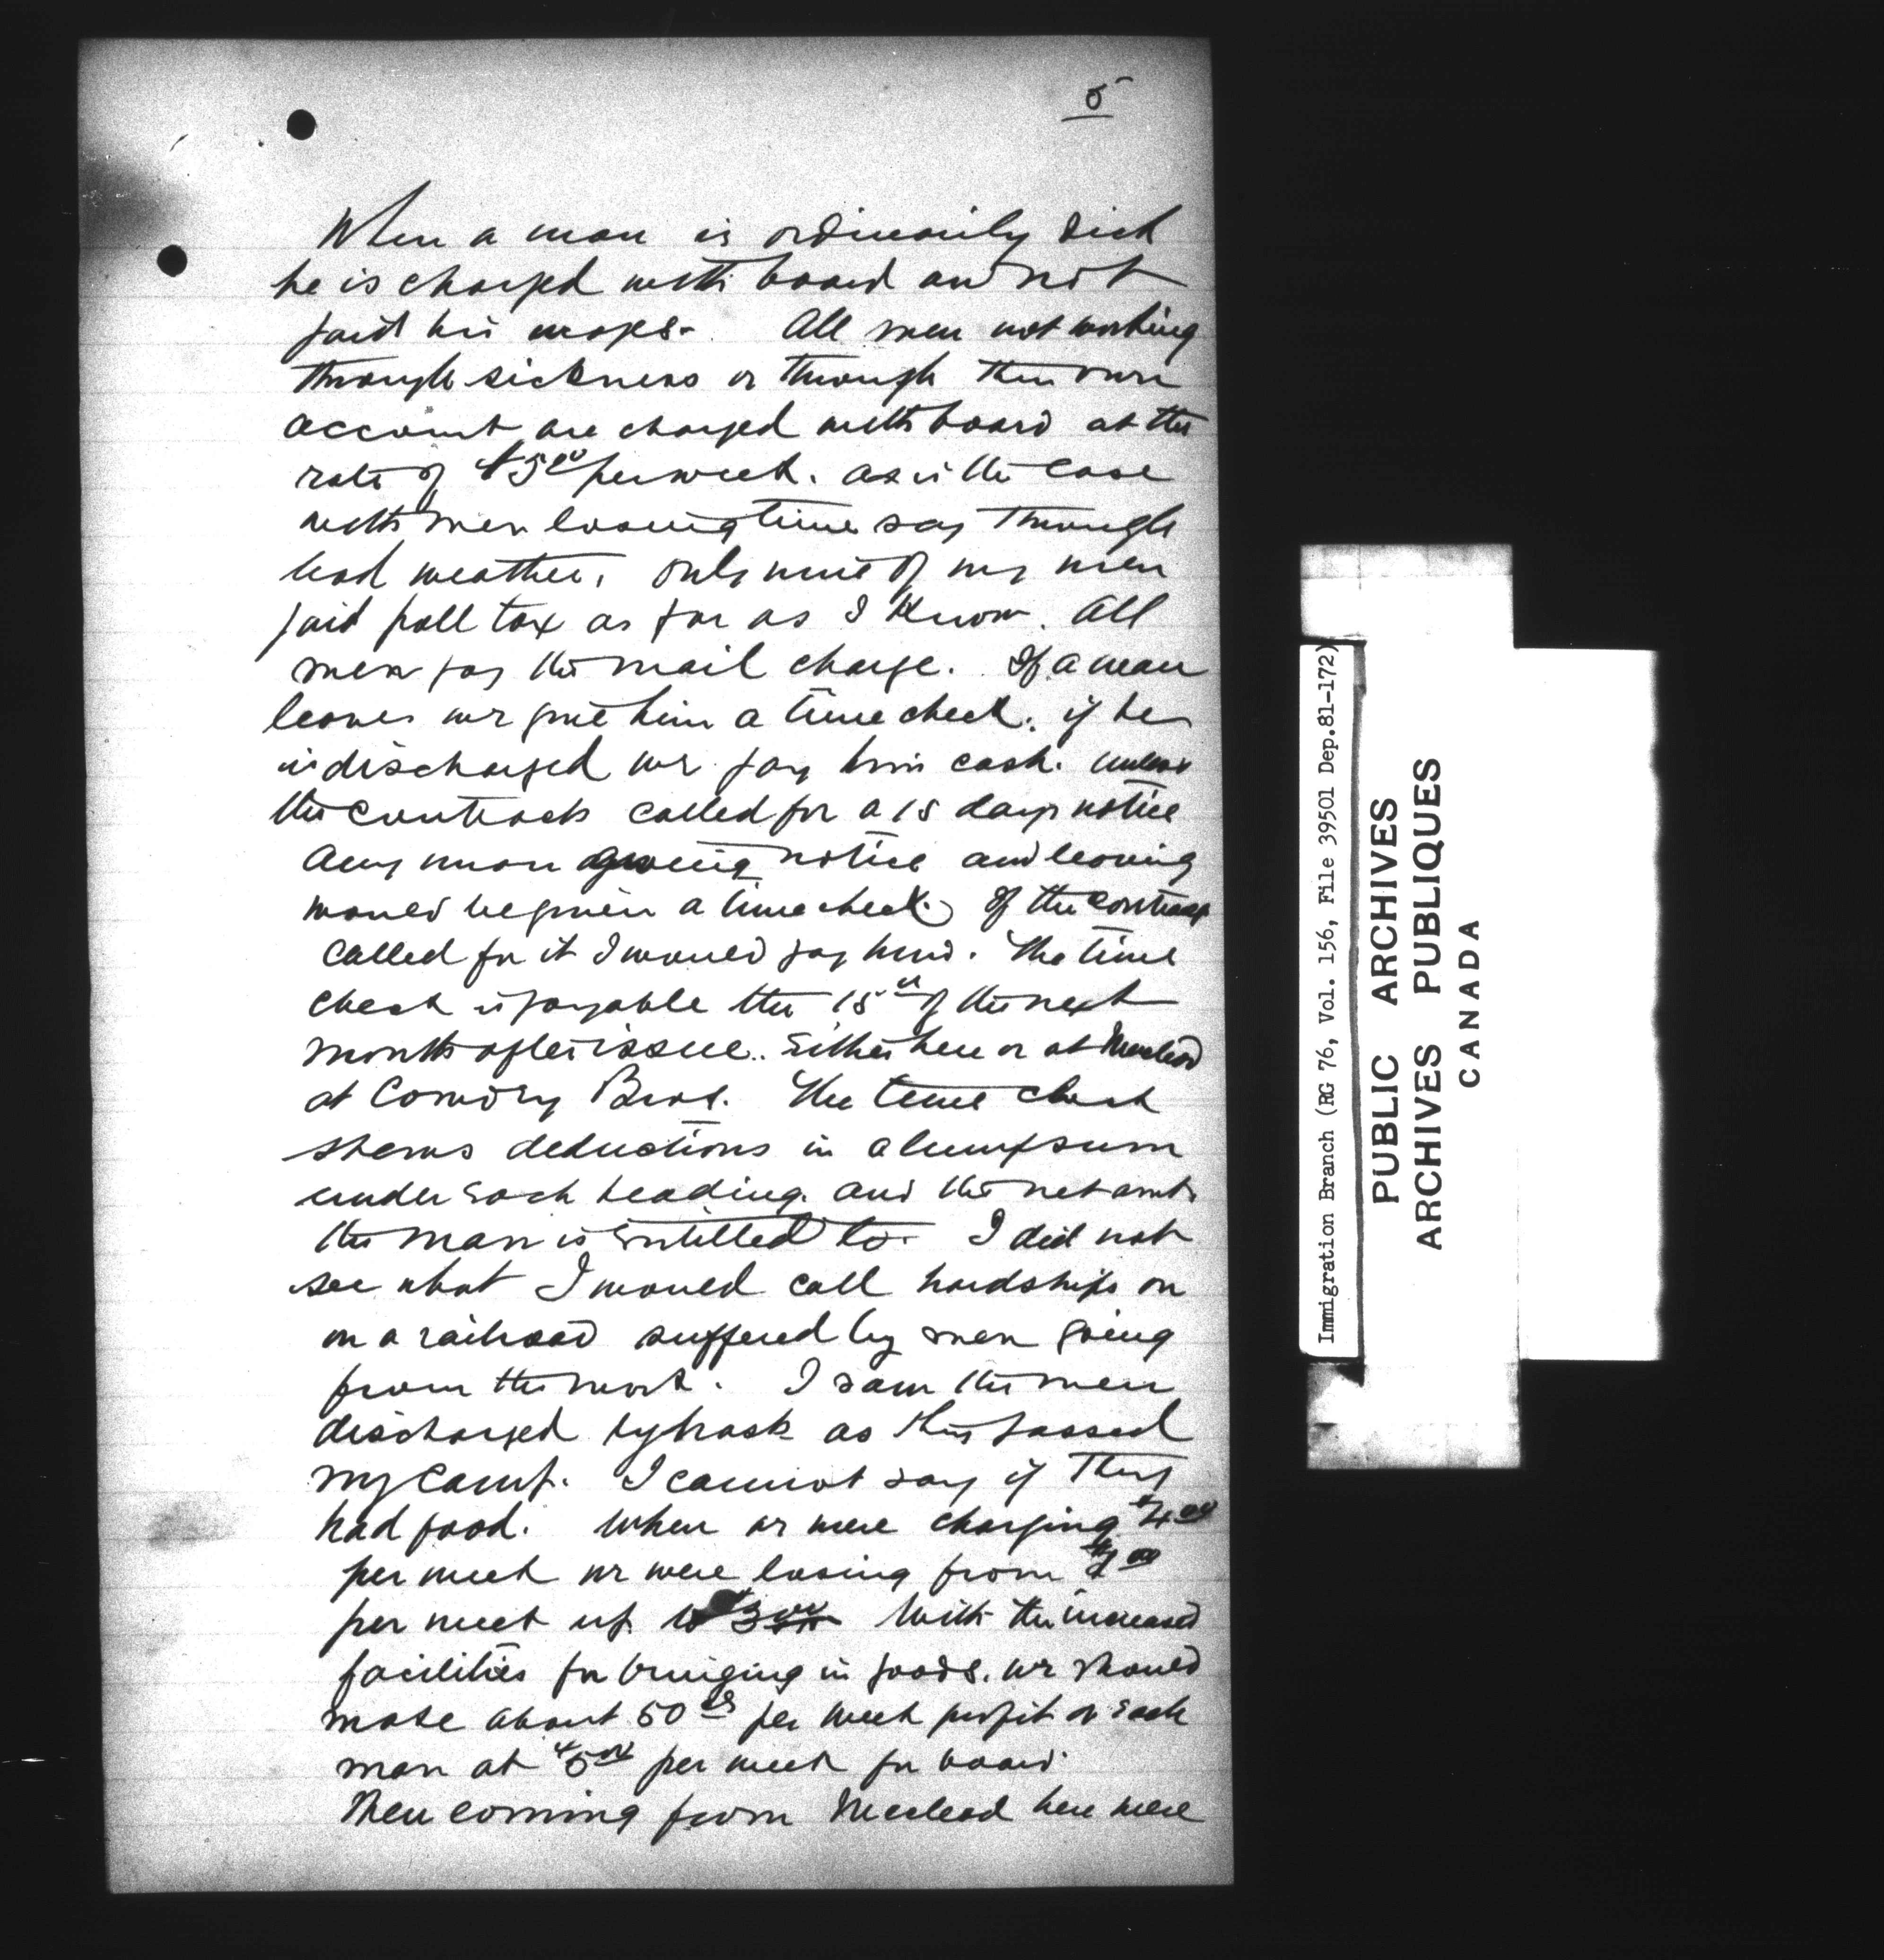 5
When a man is ordinarily sick
he is charged with board and not
paid his wages. All men not working
through sickness or through their own
account are charged with board at the
rate of $5.00 per week. as is the case
with men losing time say through
bad weather, only nine of my men
paid poll tax as far as I know. All
men pay the mail charge. If a man
leaves we give him a time check. if he
is discharged we pay him cash. unless
the contracts called for a 15 days notice
any man giving notice and leaving
would be given a time check. If the contract
called for it I would pay him. The time
check is payable the 15th of the next
month after issue. Either here or at Macleod
at Conroy Bros. The time check
shews deductions in a lump sum
under each heading. and the net amt.
the man is entitled to. I did not
see what I would call hardships on
on a railroad suffered by men going
from the work. I saw the men
discharged by as they passed
my camp. I cannot say if they
had food. When we were charging $4.00
per week we were losing from
per week up to $3.00 With the increased
facilities for bringing in goods. we should
make about 50 cts per week profit on each
man at $5.00 per week for board.
Men coming from Macleod here were
Immigration Branch (RG 76, Vol. 156, File 39501 Dep.81-172)
PUBLIC ARCHIVES
ARCHIVES PUBLIQUES
CANADA